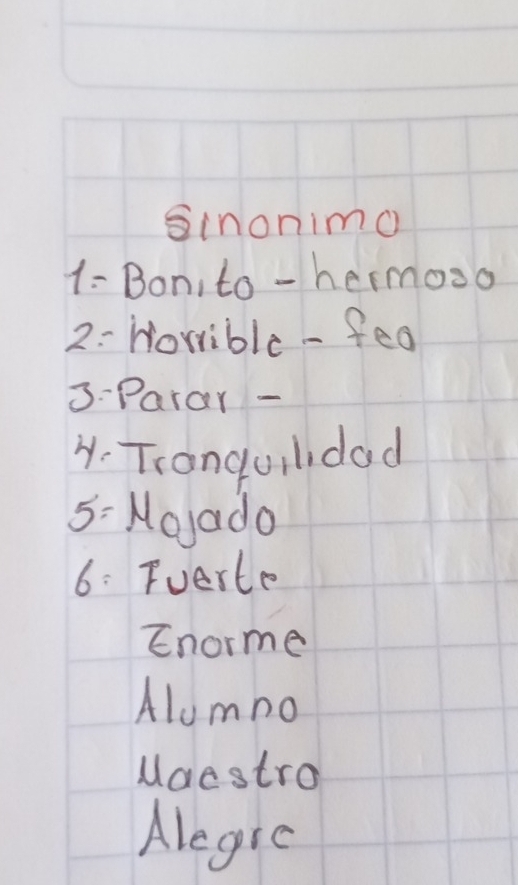 sinonimo
1.- Bonito - hermoso
2.- Horrible - feo
3.- Parar -
4.- Tranquilidad
5.- Mojado
6.- Fuerte
Enorme
Alumno
Maestro
Alegre